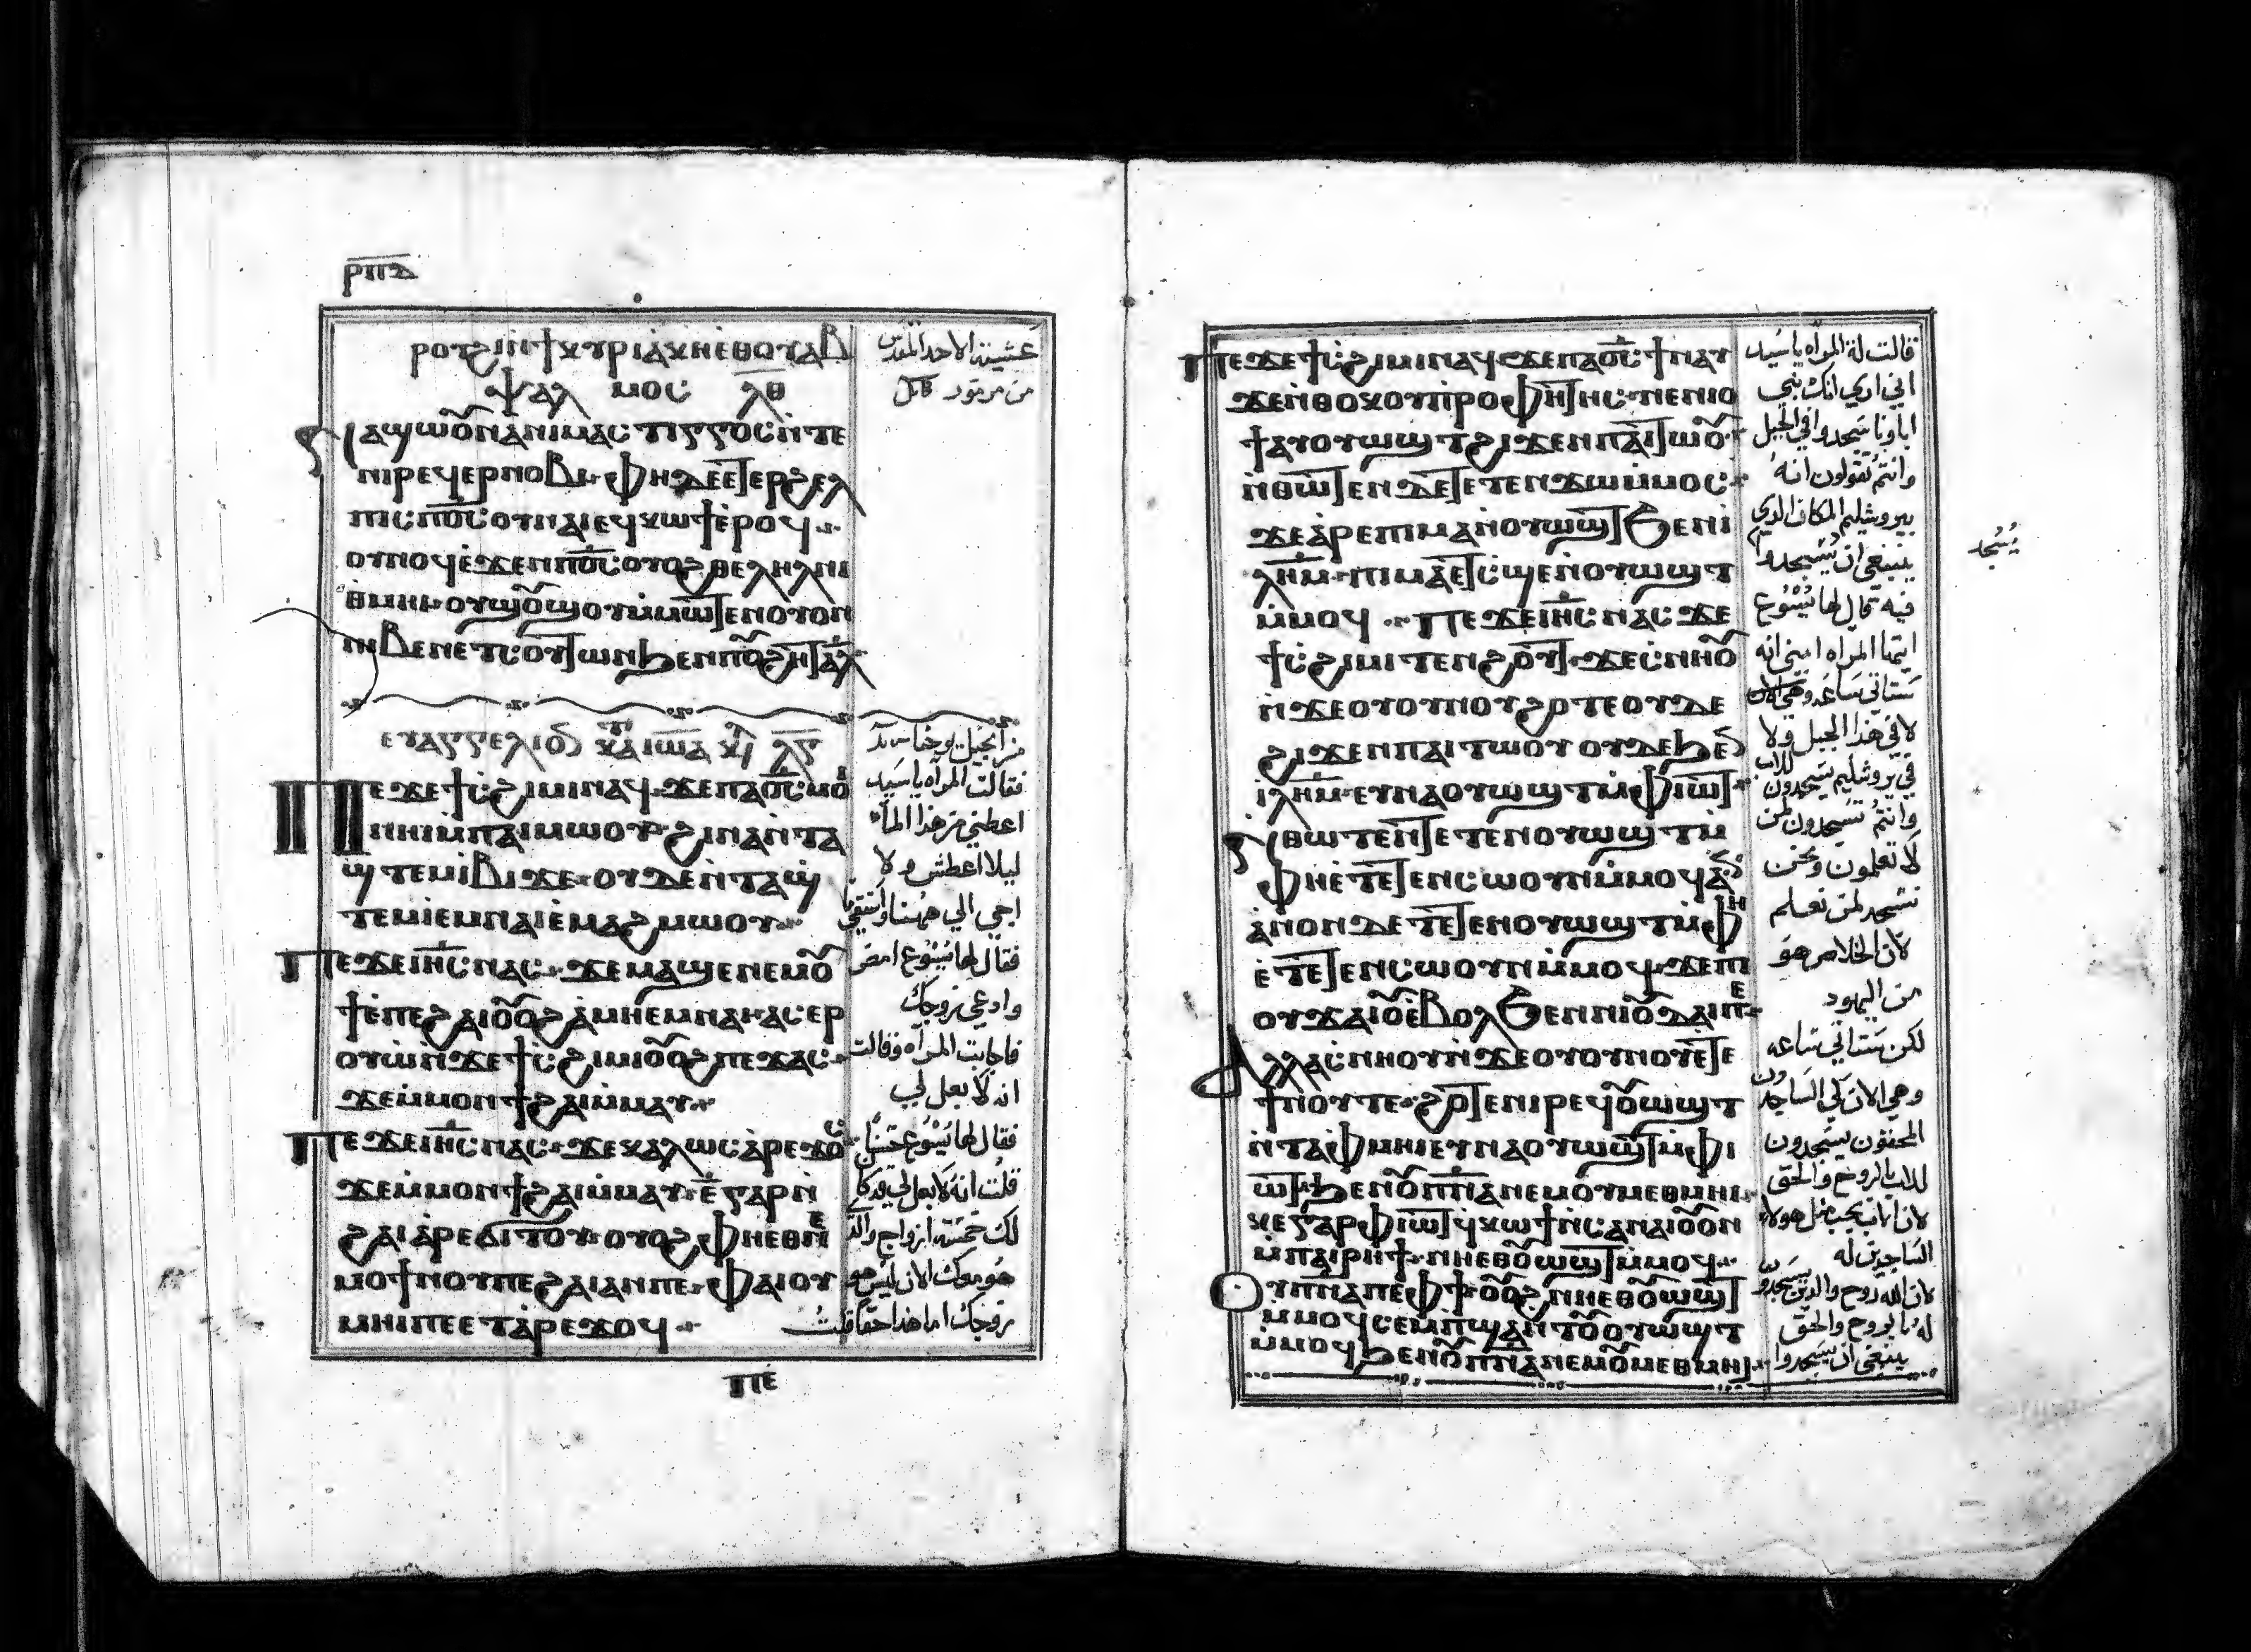 ⲣⲡⲇ
ⲣⲟⲩϩⲓⲛϯⲕⲩⲣⲓⲁⲕⲏⲉⲑⲟⲩⲁⲃ
ⲯⲁⲗⲙⲟⲥ ⲗⲑ
ⲛⲓⲣⲉϥⲉⲣⲛⲟⲃⲓ ⲫⲏⲇⲉⲉⲧⲉⲣϩⲉⲗ
ⲡⲓⲥⲡⲟ̅ⲥ̅ⲟⲩⲛⲁⲓⲉϥⲕⲱϯⲉⲣⲟϥ
ⲟⲩⲛⲟϥϫⲉⲛⲡⲟ̅ⲥ̅ⲟⲩⲟϩⲑⲉⲗⲏⲗⲛⲓ
ⲑⲙⲏⲓ ⲟⲩϣⲟ̅ϣⲟⲩⲙⲙⲱⲧⲉⲛⲟⲩⲟⲛ
ⲛⲓⲃⲉⲛⲉⲧⲥⲟⲩⲧⲱⲛϧⲉⲛⲡⲟ̅ϩⲏⲧⲁⲗ
ⲉⲩⲁⲅⲅⲉⲗⲓⲟⲛ ⲕⲁⲧⲁ ⲓⲱⲁ ⲕⲉ ⲗⲋ
ⲡⲉϫⲉϯⲥϩⲓⲙⲓⲛⲁϥ ϫⲉⲡⲁⲟ̅ⲥ̅ⲙⲟ
ⲛⲏⲓⲙⲡⲁⲓⲙⲱⲟⲩ ϩⲓⲛⲁⲛⲧⲁ
ϣⲧⲉⲙⲓⲃⲓϫⲉ ⲟⲩⲇⲉⲛⲧⲁϣ
ⲧⲉⲙⲓⲉⲙⲛⲁⲓⲉⲙⲁϩⲙⲱⲟⲩ
ⲡⲉϫⲉⲓⲏ̅ⲥ̅ⲛⲁⲥ ϫⲉⲙⲁϣⲉⲛⲉⲙⲟ̅
ϯⲉⲡⲉϩⲁⲓⲟ̅ⲟ̅ϩⲁⲙⲏⲉⲙⲛⲁⲓⲁⲥⲉⲣ
ⲟⲩⲱⲛϫⲉϯⲥϩⲓⲙⲓⲟ̅ⲟ̅ϩⲡⲉϫⲁⲥ
ϫⲉⲙⲙⲟⲛϯϩⲁⲓⲙⲙⲁⲩ
ⲡⲉϫⲉⲓⲏ̅ⲥ̅ⲛⲁⲥ ϫⲉⲕⲁⲗⲱⲥⲁⲣⲉϫⲟⲥ
ϫⲉⲙⲙⲟⲛϯϩⲁⲓⲙⲙⲁⲩ ⲉ̅ⲅⲁⲣⲛ
ϩⲁⲓⲁⲣⲉϭⲓⲧⲟⲩ ⲟⲩⲟϩⲫⲏⲉⲑⲛⲉ
ⲙⲟϯⲛⲟⲩⲡⲉϩⲁⲓⲁⲛⲡⲉ ⲫⲁⲓⲟⲩ
ⲙⲏⲓⲡⲉⲉⲧⲁⲣⲉϫⲟϥ
ⲡⲉ
عشية الاحد المقدس
من انجيل يوحنا
فقالت المرآه ياسيد
اعطني من هذا الماء
ليلا اعطش ولا
اجي الي ههنا واستقي
فقال لها يسوع امض
وادعي زوجك
فاجابت المرآه وقالت
انه لا بعل لي
فقال لها يسوع حسنًا
قلت انه لا بعل لي قد كان
لك خمسة ازواج والذ
هو معك الان ليس هو
زوجك اما هذا حقا قلت
ⲡⲉϫⲉϯⲥϩⲓⲙⲓⲛⲁϥϫⲉⲡⲁⲟ̅ⲥ̅ϯⲛⲁⲩ
ϫⲉⲛⲑⲟⲕⲟⲩⲡⲣⲟⲫⲏⲧⲏⲥ ⲛⲉⲛⲓⲟ
ϯⲁⲩⲟⲩⲱϣⲧϩⲓϫⲉⲛⲡⲁⲓⲧⲱⲟ̅
ⲛⲑⲱⲧⲉⲛⲇⲉⲧⲉⲧⲉⲛϫⲱⲙⲙⲟⲥ
ϫⲉⲁⲣⲉⲡⲓⲙⲁⲛⲟⲩⲱϣⲧϧⲉⲛⲓ
ⲗⲏ̅ⲙ̅ ⲡⲓⲙⲁⲉⲧⲥϣⲉⲛⲟⲩⲱϣⲧ
ⲙⲙⲟϥ ⲡⲉϫⲉⲓⲏ̅ⲥ̅ⲛⲁⲥ ϫⲉ
ϯⲥϩⲓⲙⲓⲧⲉⲛϩⲟⲩⲧ ϫⲉⲥⲛⲏⲟ̅
ⲛϫⲉⲟⲩⲟⲩⲛⲟⲩϩⲟⲧⲉⲟⲩⲇⲉ
ϩⲓϫⲉⲛⲡⲁⲓⲧⲱⲟⲩ ⲟⲩⲇⲉϧⲉⲛ
ⲓⲗⲏ̅ⲙ̅ ⲉⲩⲛⲁⲟⲩⲱϣⲧⲙⲫⲓⲱⲧ
ⲛⲑⲱⲧⲉⲛⲧⲉⲧⲉⲛⲟⲩⲱϣⲧⲙ
ⲫⲏⲉⲧⲉⲧⲉⲛⲥⲱⲟⲩⲛⲙⲙⲟϥⲁⲛ
ⲁⲛⲟⲛⲇⲉⲧⲉⲧⲉⲛⲟⲩⲱϣⲧⲙⲫⲏ
ⲉⲧⲉⲧⲉⲛⲥⲱⲟⲩⲛⲙⲙⲟϥ ϫⲉⲡⲓ
ⲟⲩϫⲁⲓⲟ̅ⲉⲃⲟⲗϧⲉⲛⲛⲓⲟ̅ⲇⲁⲓⲡⲉ
ⲁⲗⲗⲁⲥⲛⲏⲟⲩⲛϫⲉⲟⲩⲟⲩⲛⲟⲩⲉⲧⲉ
ϯⲛⲟⲩⲧⲉ ϩⲟⲧⲉⲛⲓⲣⲉϥⲟ̅ⲱϣⲧ
ⲛⲧⲁⲫⲙⲏⲓⲉⲩⲛⲁⲟⲩⲱϣⲧⲙⲫⲓ
ⲱⲧϧⲉⲛⲟ̅ⲡ̅ⲛ̅ⲁ̅ⲛⲉⲙⲟⲩⲙⲉⲑⲙⲏⲓ
ⲕⲉⲅⲁⲣⲫⲓⲱⲧϥⲕⲱϯⲛⲥⲁⲛⲁⲓⲟ̅ⲟⲛ
ⲙⲡⲁⲓⲣⲏϯ ⲛⲏⲉⲑⲟ̅ⲱϣⲧⲙⲙⲟϥ
ⲟⲩⲡ̅ⲛ̅ⲁ̅ⲡⲉⲫϯ ⲟ̅ⲟ̅ϩⲛⲏⲉⲑⲟ̅ⲱϣⲧ
ⲙⲙⲟϥⲥⲉⲙⲡϣⲁⲛⲧⲟ̅ⲟⲩⲱϣⲧ
ⲙⲙⲟϥϧⲉⲛⲟ̅ⲡ̅ⲛ̅ⲁ̅ⲛⲉⲙⲟ̅ⲙⲉⲑⲙⲏⲓ
قالت له المرآه ياسيد
اني اري انك نبي
اباونا سجدوا في الجبل
وانتم تقولون انه
بيروشليم المكان الذي
ينبغي ان يسجدوا
فيه قال لها يسوع
ايتها المرآه امني انه
ستاتي ساعه
لا في هذا الجبل ولا
في يروشليم يسجدون للاب
وانتم تسجدون لمن
لا تعلمون ونحن
نسجد لمن نعلم
لان الخلاص هو
من اليهود
لكن ستاتي ساعه
وهي الان لكي الساجدون
المحقون يسجدون
للاب بالروح والحق
لان الاب يحب مثل هولاء
الساجدين له
لان الله روح والذين يسجدو
له بالروح والحق
ينبغي ان يسجدوا
يُسجد